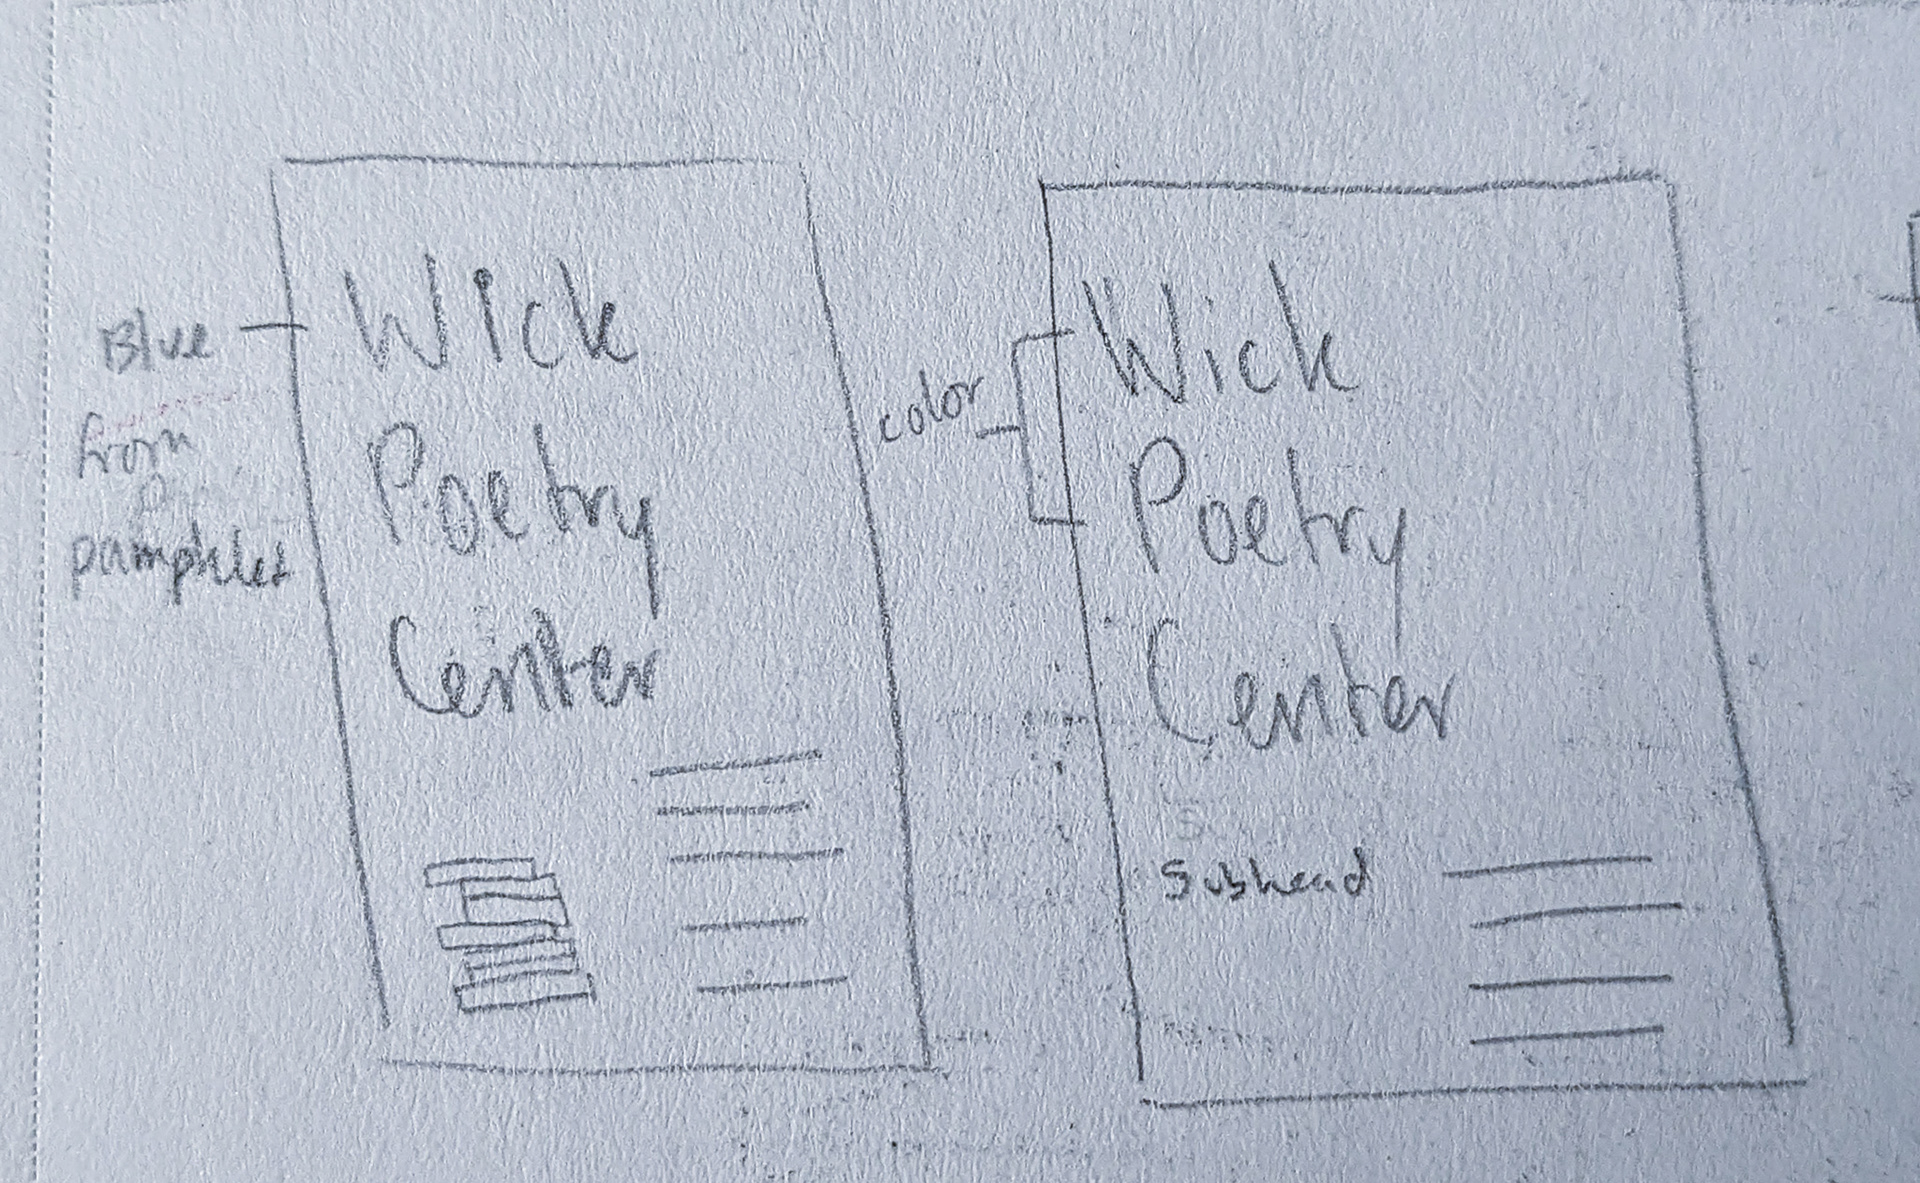 Blue
from
pamphlet
Wick
Poetry
Center
color
Wick
Poetry
Center
Subhead